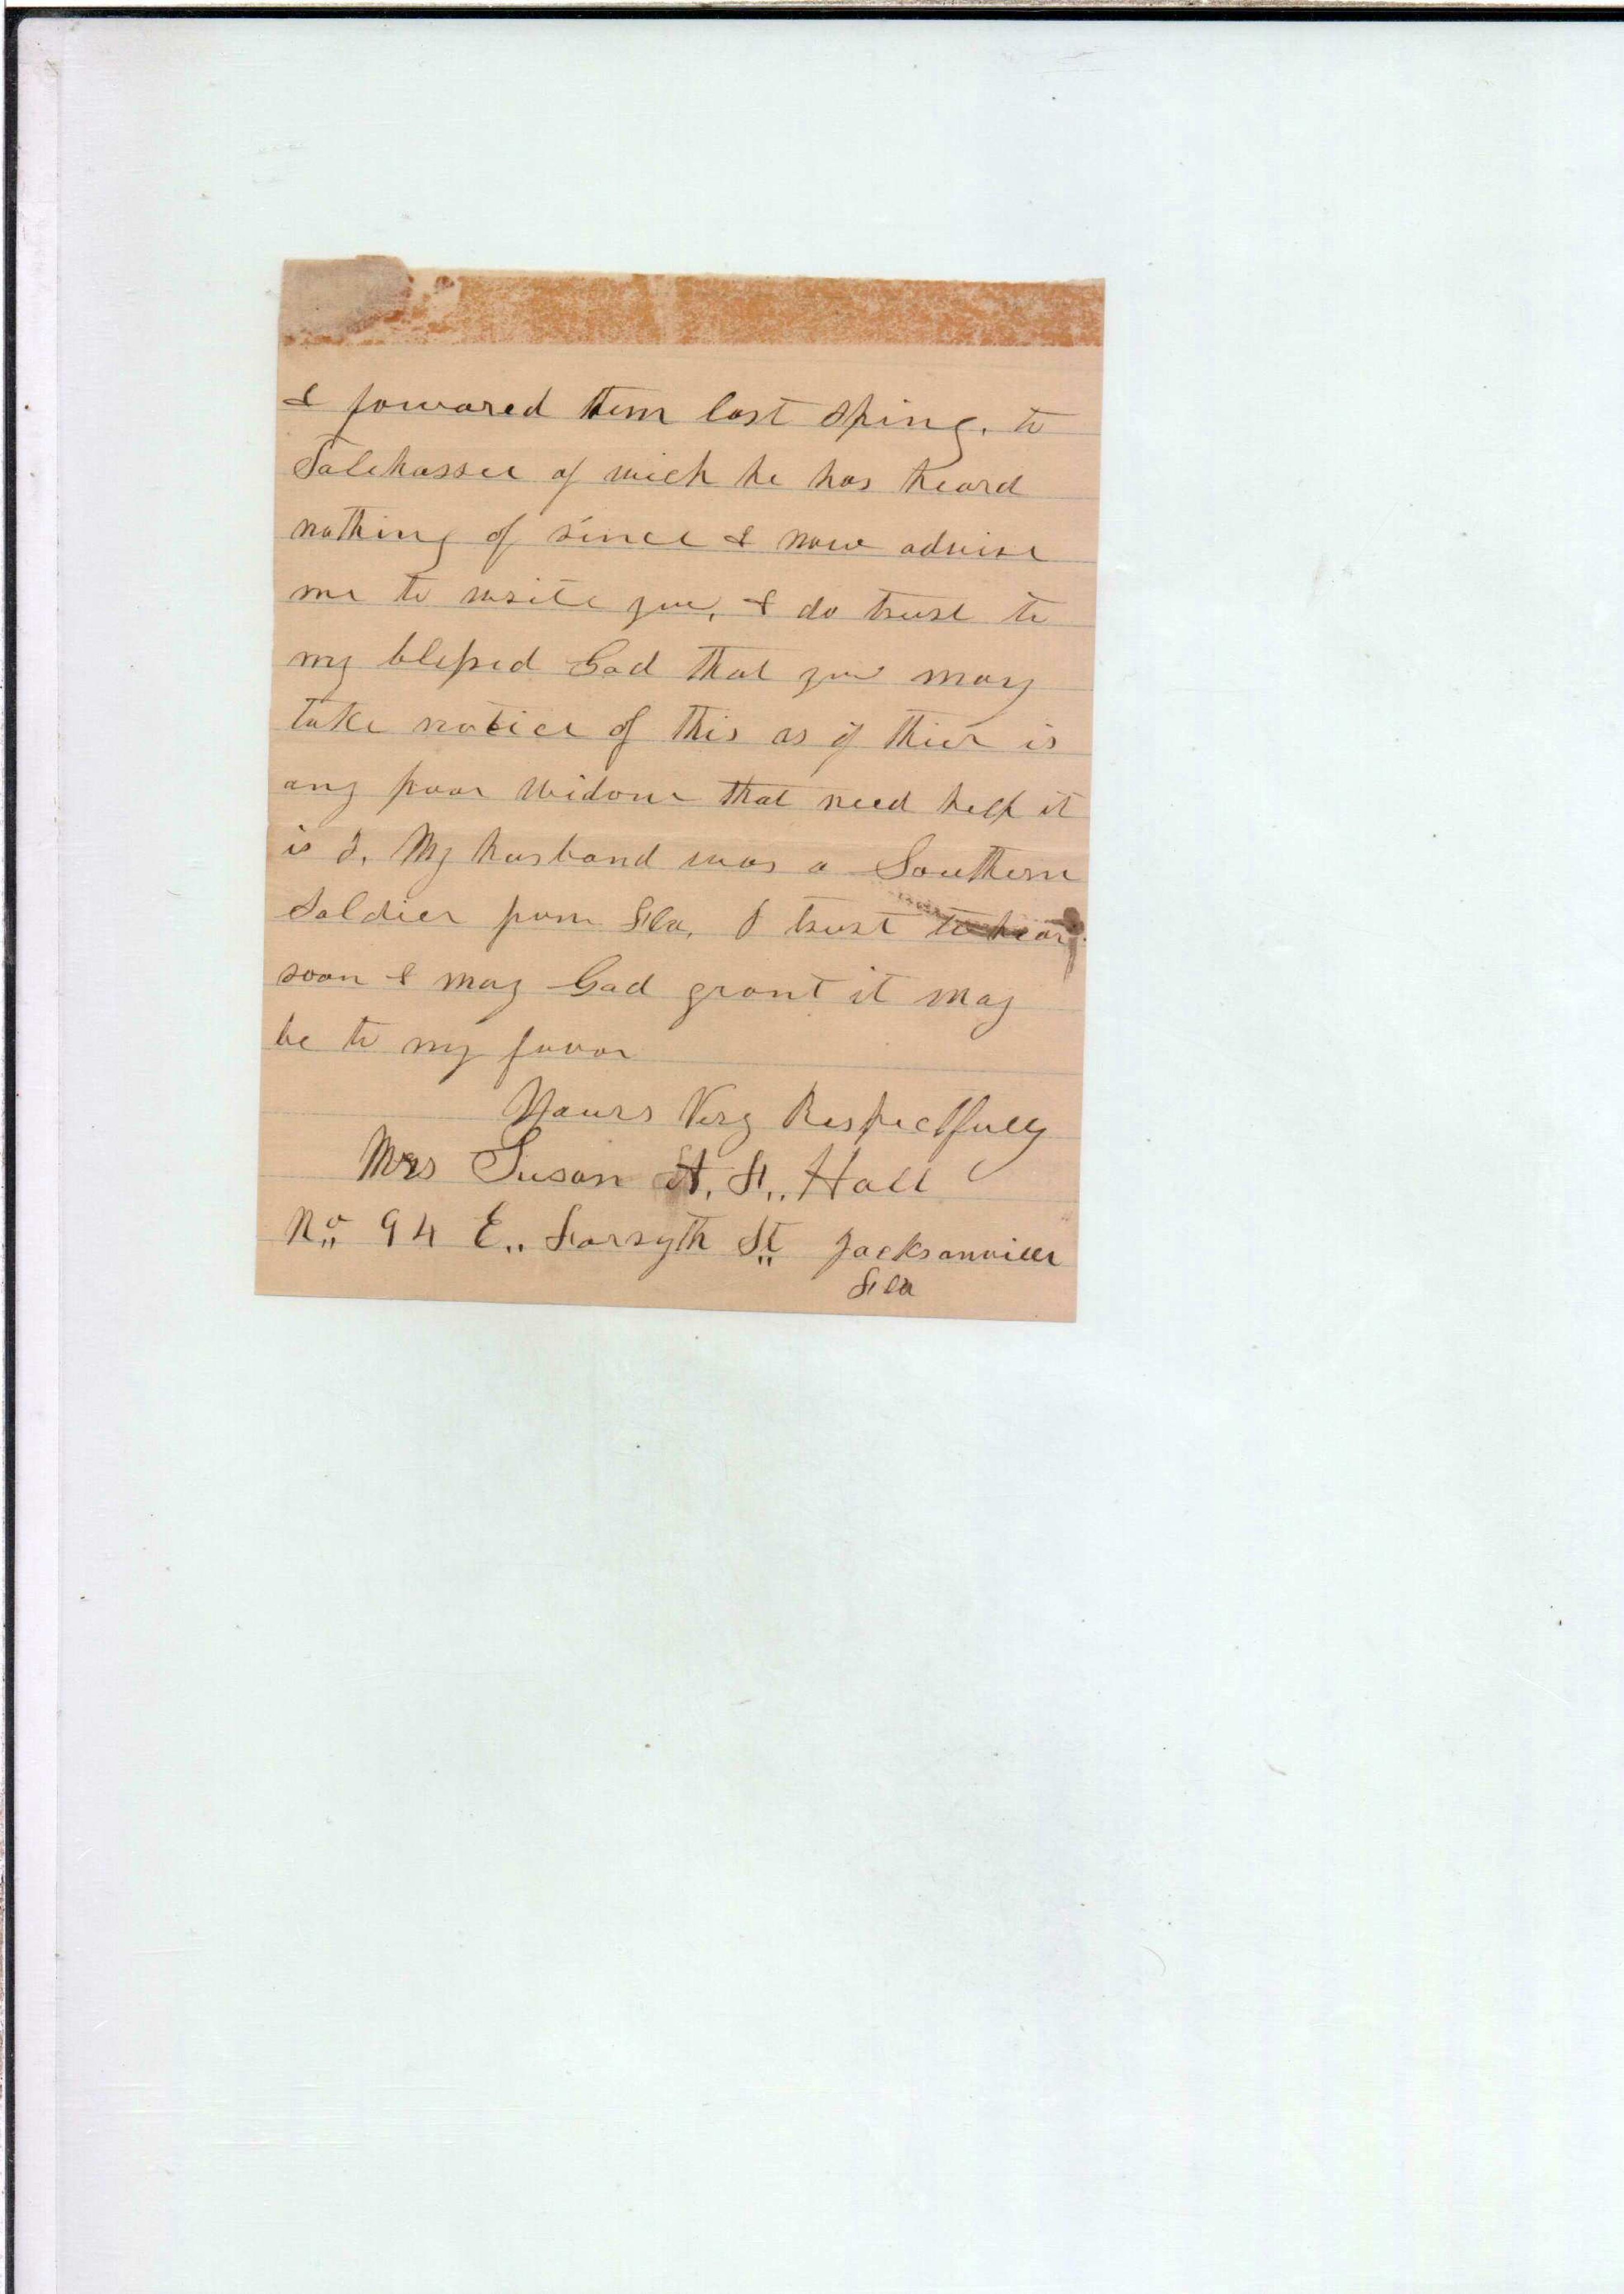 & forwared them last Sping. to
Talehassee of wich he has heard
nothing of since & now advise
me to write you. I do trust to
my blessed God that you may
take notice of this as if thier is
any poor widow that need help it
is I. My husband was a Southern
Soldier from Fla. I trust to hear
soon & may God grant it may
be to my favor
Yours Very Respectfully
Mrs Susan Hall
No 94 E.. Forsyth St Jacksonville
Fla